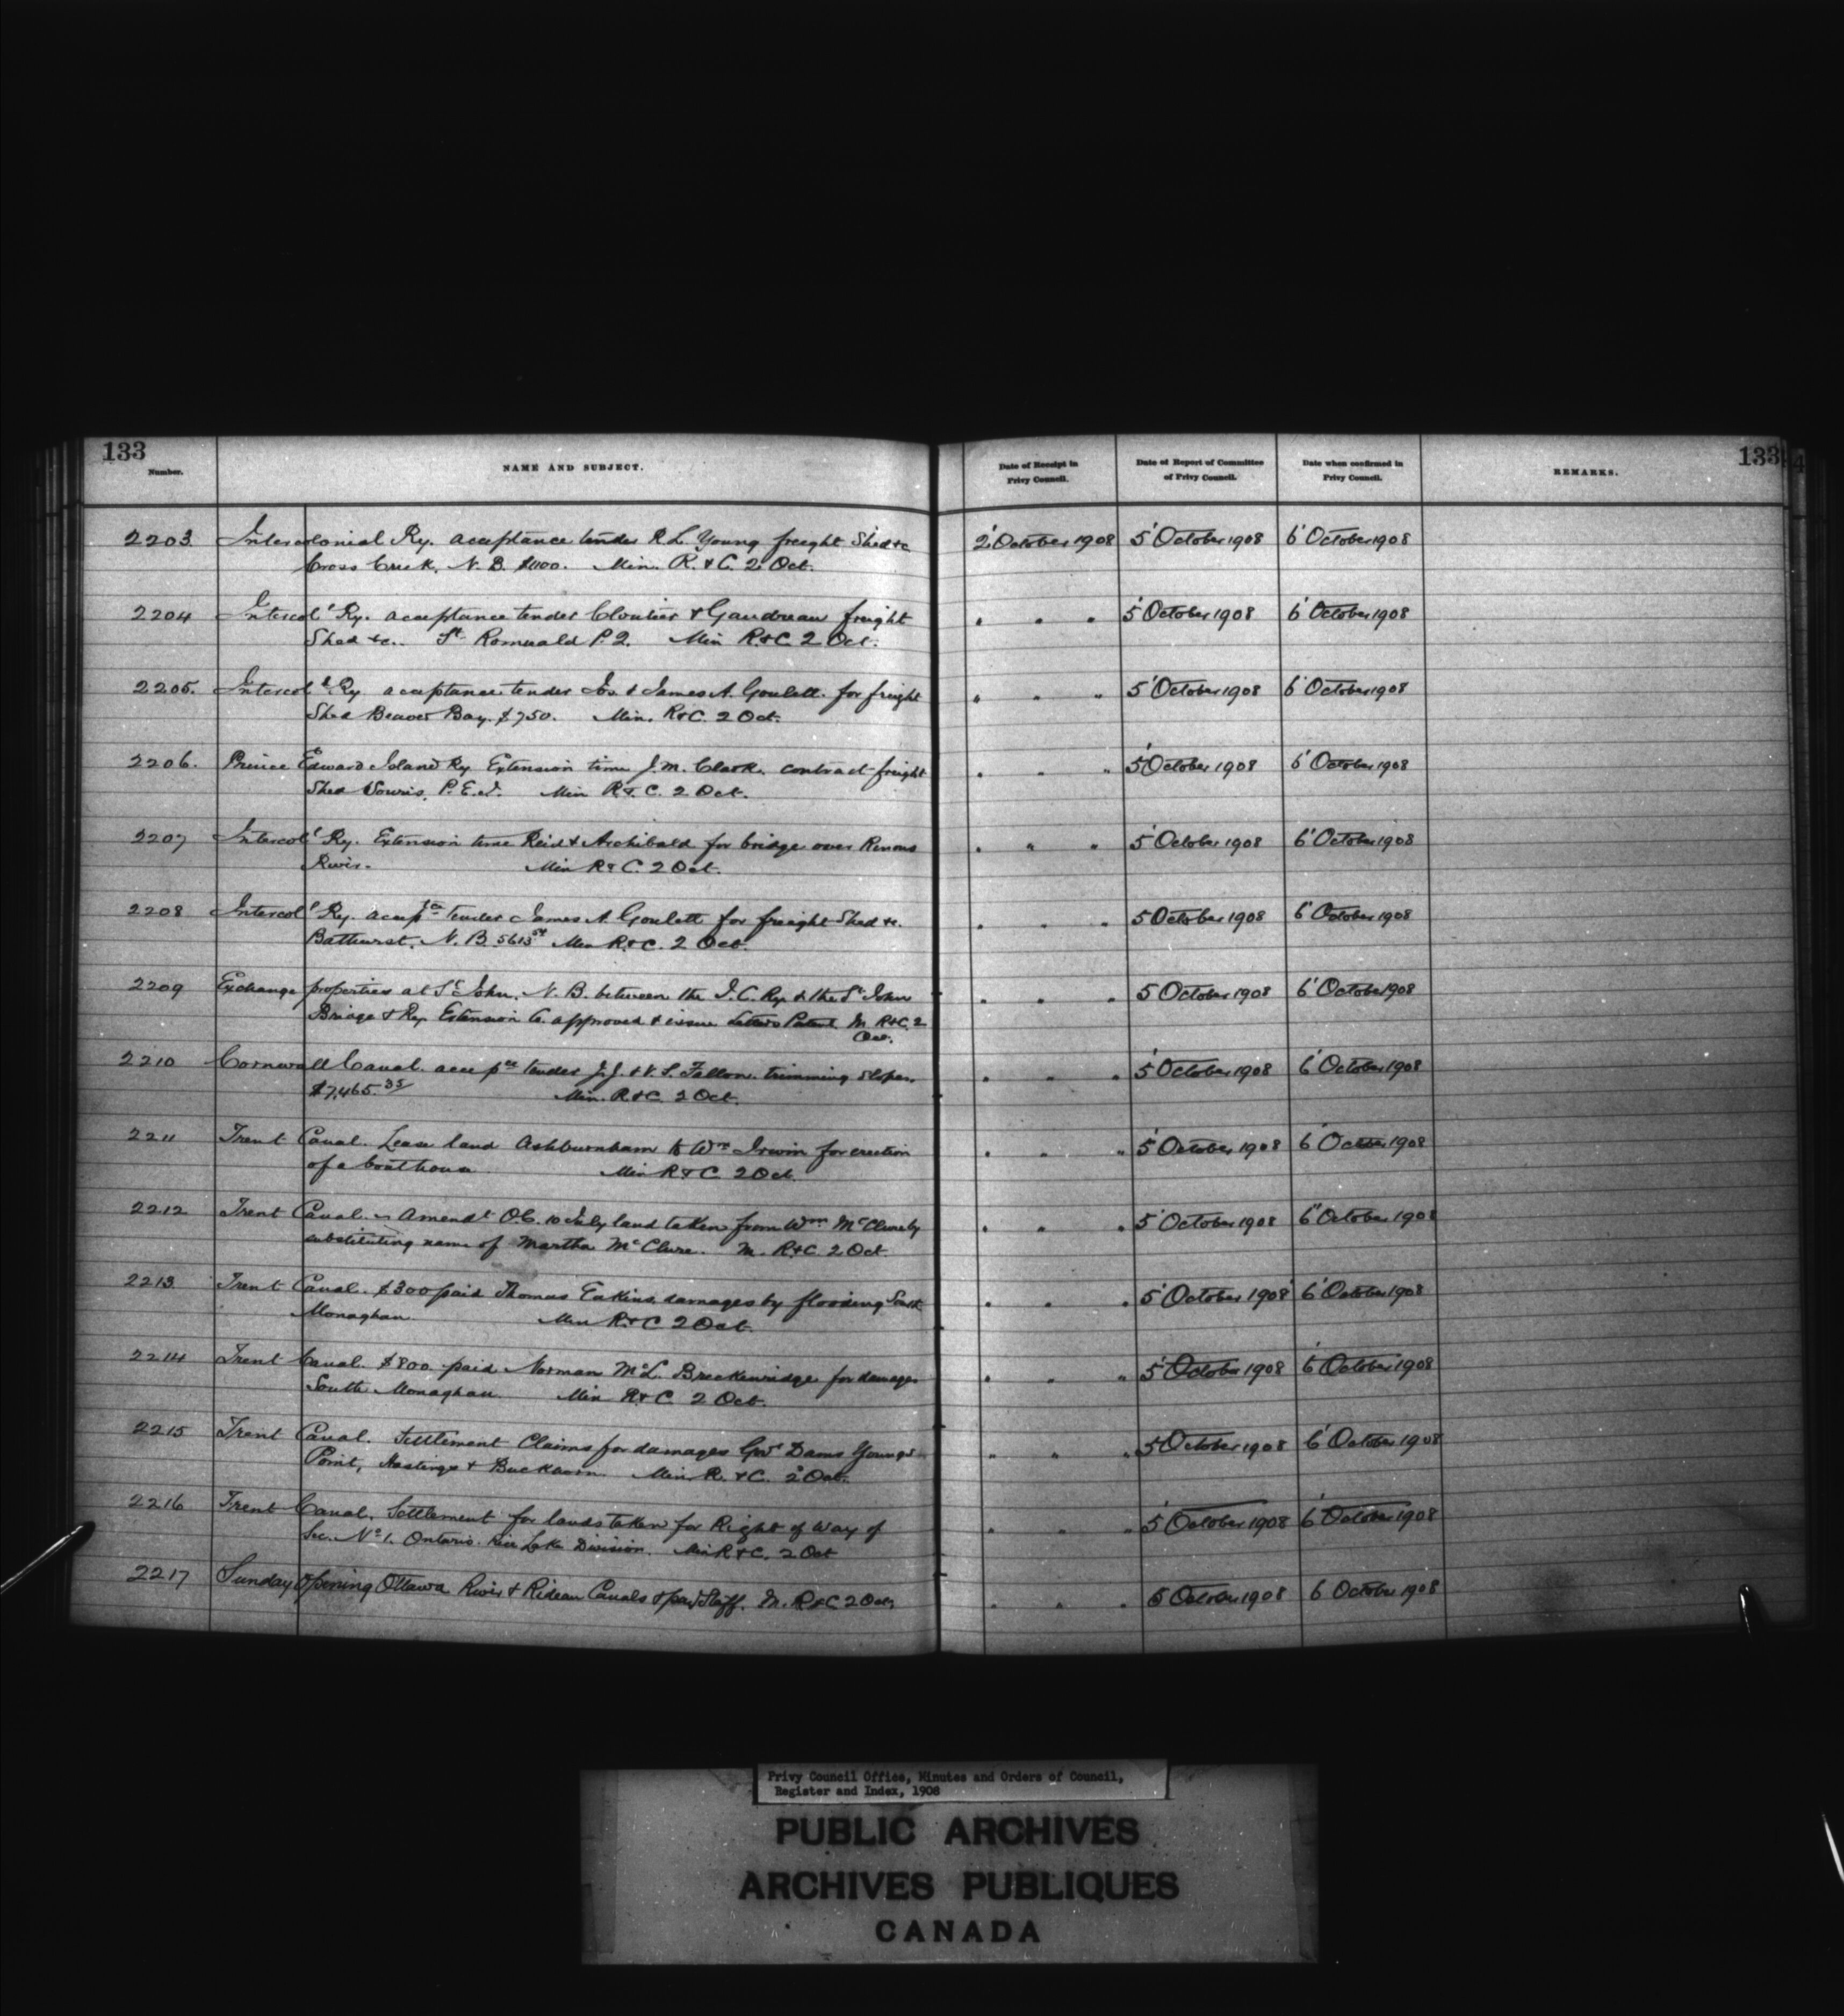 133
Number.
NAME AND SUBJECT.
Date of Receipt in
Privy Council.
Date of Report of Committee
of Privy Council.
Date when confirmed in
Privy Council.
REMARKS.
133
2203 Intercolonial Ry. acceptance tender R. L. Young freight Shed &c 2' October 1908 5' October 1908 6' October 1908
Cross Creek, N. B. $1100. Min. R. & C. 2 Oct.
2204 Intercol' Ry. acceptance tender Cloutier & Gaudreau freight " " " 5' October 1908 6' October 1908
Shed &c. St Romuald P. Q. Min R&C. 2 Oct.
2205. Intercol' Ry acceptance tender Jos & James A. Goulett. for freight " " " 5' October 1908 6' October 1908
Shed Beaver Bay. $750. Min. R&C. 2 Oct.
2206. Prince Edward Island Ry Extension time J. M. Clark. contract freight " " " 5' October 1908 6' October 1908
Shed Souris, P. E. I. Min R&. C. 2 Oct.
2207 Intercol' Ry. Extension time Reid & Archibald for bridge over Renous " " " 5' October 1908 6' October 1908
River. Min R&C. 2 Oct.
2208 Intercol' Ry. accepce tender James A. Goulett for freight Shed &c. " " " 5 October 1908 6' October 1908
Bathurst, N. B. Min R.&C. 2 Oct.
2209 Exchange properties at St John, N. B. between the I. C. Ry & the St John " " " 5 October 1908 6' October 1908
Bridge & Ry Extension Co. approved & issue Letters Patent M R&C. 2
Oct.
2210 Cornwall Canal. accepce tender J. J. & V. S. Fallon. trimming slopes. " " " 5' October 1908 6' October 1908
$7,465.35 Min. R&C. 2 Oct.
2211 Trent Canal. Lease land Ashburnham to Wm Irwin for erection " " " 5' October 1908 6' October 1908
of a boathouse Min R&C. 2 Oct.
2212 Trent Canal. Amendt O.C. 10 July land taken from Wm McClure by " " " 5' October 1908 6' October 1908
substituting name of Martha McClure. M. R&C. 2 Oct.
2213 Trent Canal. $300 paid Thomas Eakins damages by flooding South " " " 5' October 1908 6' October 1908
Monaghan Min R&C 2 Oct.
2214 Trent Canal. $800 paid Norman McL. Breckenridge for damages " " " 5' October 1908 6' October 1908
South Monaghan. Min R&C 2 Oct.
2215 Trent Canal. Settlement Claims for damages Govt Dams Youngs " " " 5 October 1908 6' October 1908
Point, Hastings & Buckhorn. Min R. &C. 2 Oct.
2216 Trent Canal. Settlement for lands taken for Right of Way of " " " 5' October 1908 6' October 1908
Sec. No 1. Ontario Rice Lake Division. Min R&C. 2 Oct
2217 Sunday opening Ottawa River & Rideau Canals & pay Staff. M. R&C 2 Oct. " " " 5 October 1908 6 October 1908
Privy Council Office, Minutes and Orders of Council,
Register and Index, 1908
PUBLIC ARCHIVES
ARCHIVES PUBLIQUES
CANADA